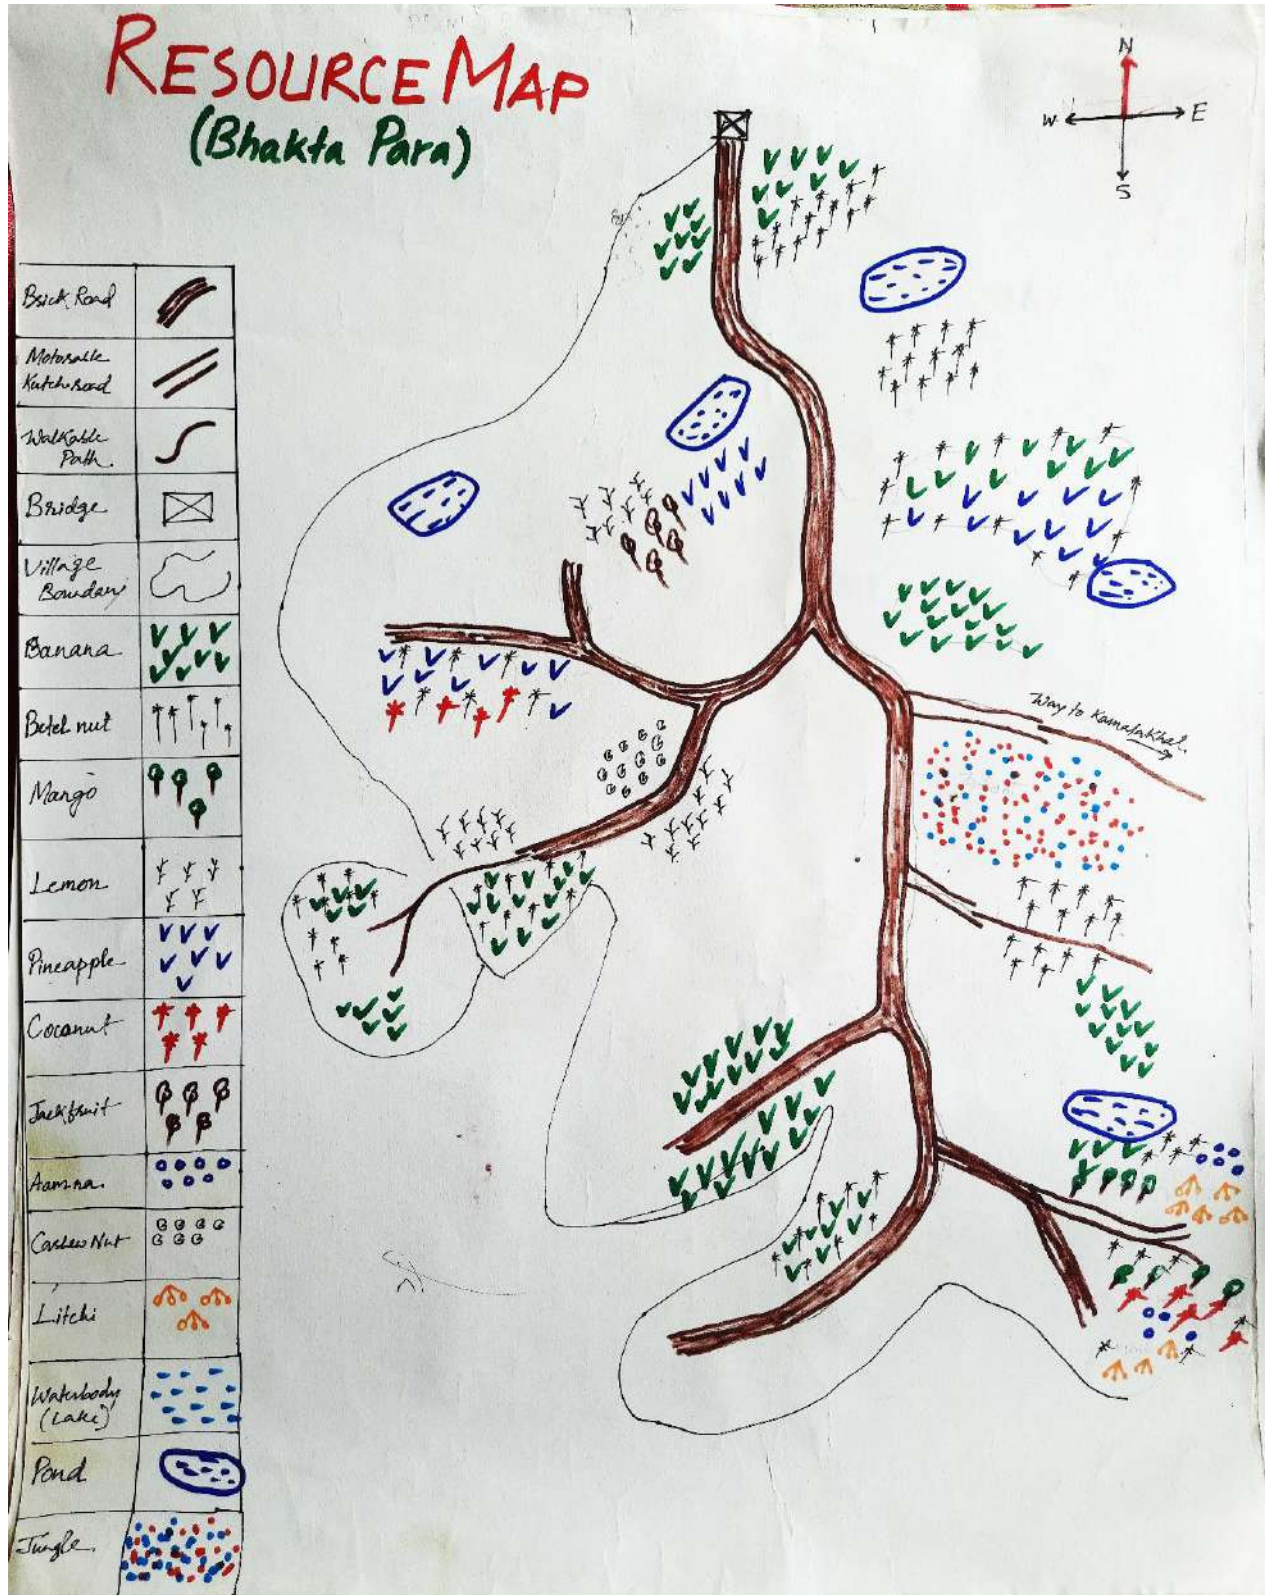 RESOURCE MAP
(Bhakta Para)
N
W
E
S
Brick Road
Motorable
Kutch road
Walkable
Path.
Bridge
Village
Boundary
Banana
Betel nut
Mango
Lemon
Pineapple
Coconut
Jackfruit
Aamra.
Cashew Nut
Litchi
Waterbody
(Lake)
Pond
Jungle.
Way to Kamalakhal.